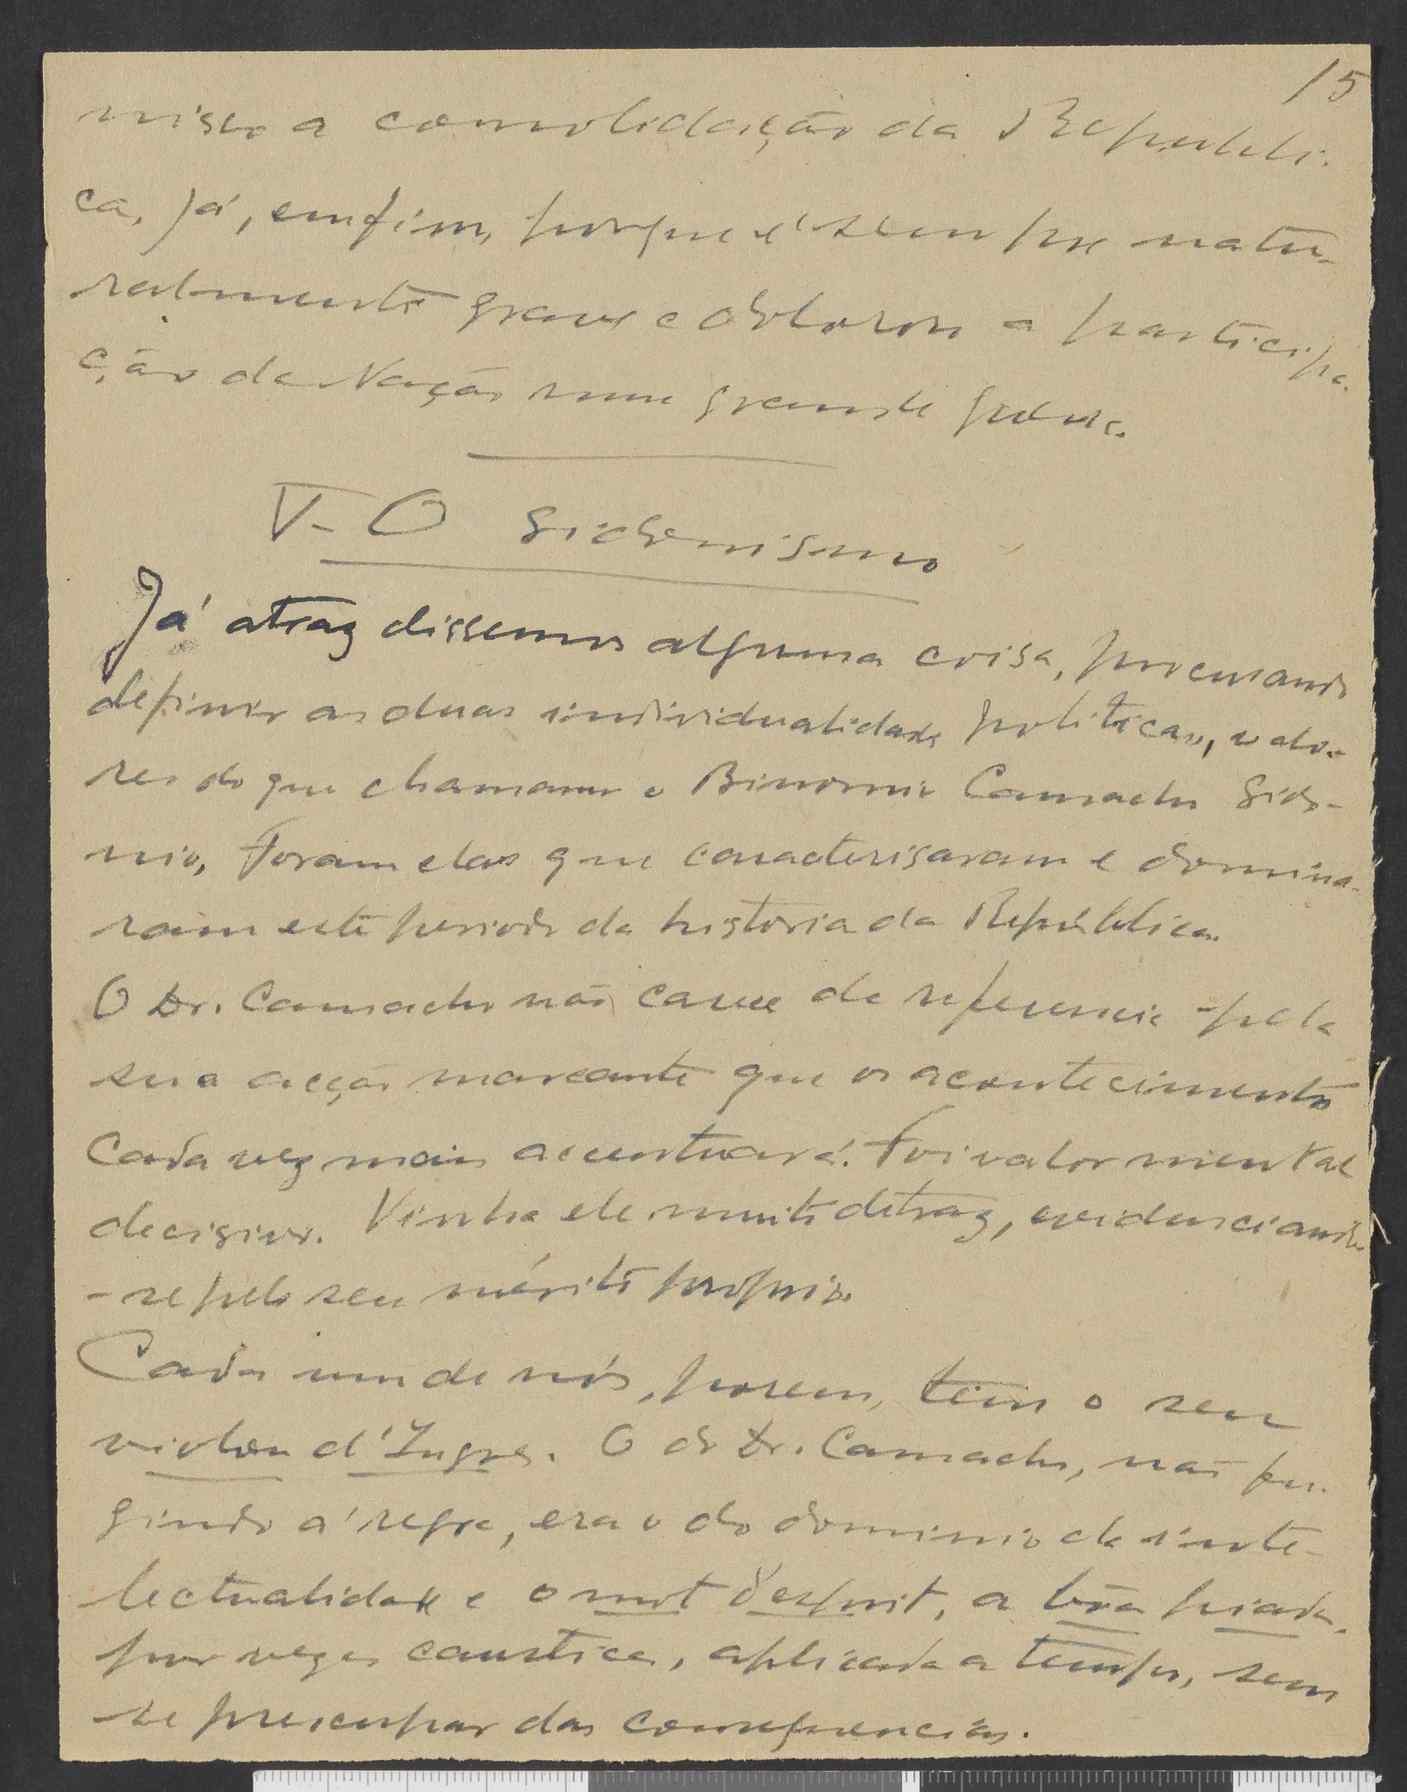 15
nisso a consolidação da Republi-
ca, já, emfim, porque é sempre natu-
ralmente grave e dolorosa a participa-
ção da Nação numa grande guerra.
V- O Sidonismo
Já atraz dissemos alguma coisa, procurando
definir as duas individualidades politicas,
res do que chamamos o Binomio Camacho Sido-
nio. Foram elas que caracterisaram e domina-
ram este periodo da historia da República.
O Dr. Camacho não carece de referencia pela
sua acção marcante que os acontecimentos
cada vez mais accentuará. Foi valor mental
decisivo. Vinha ele muito detraz, evidenciando
-se pelo seu mérito proprio.
Cada um de nós, porem, tem o seu
violon d'Ingres. O do Dr. Camacho, não fu-
gindo á regra, era o do dominio da inte-
lectualidade e o mot d'esprit, a bôa piada,
por vezes caustica, aplicada a tempo, sem
se preocupar das consequencias.